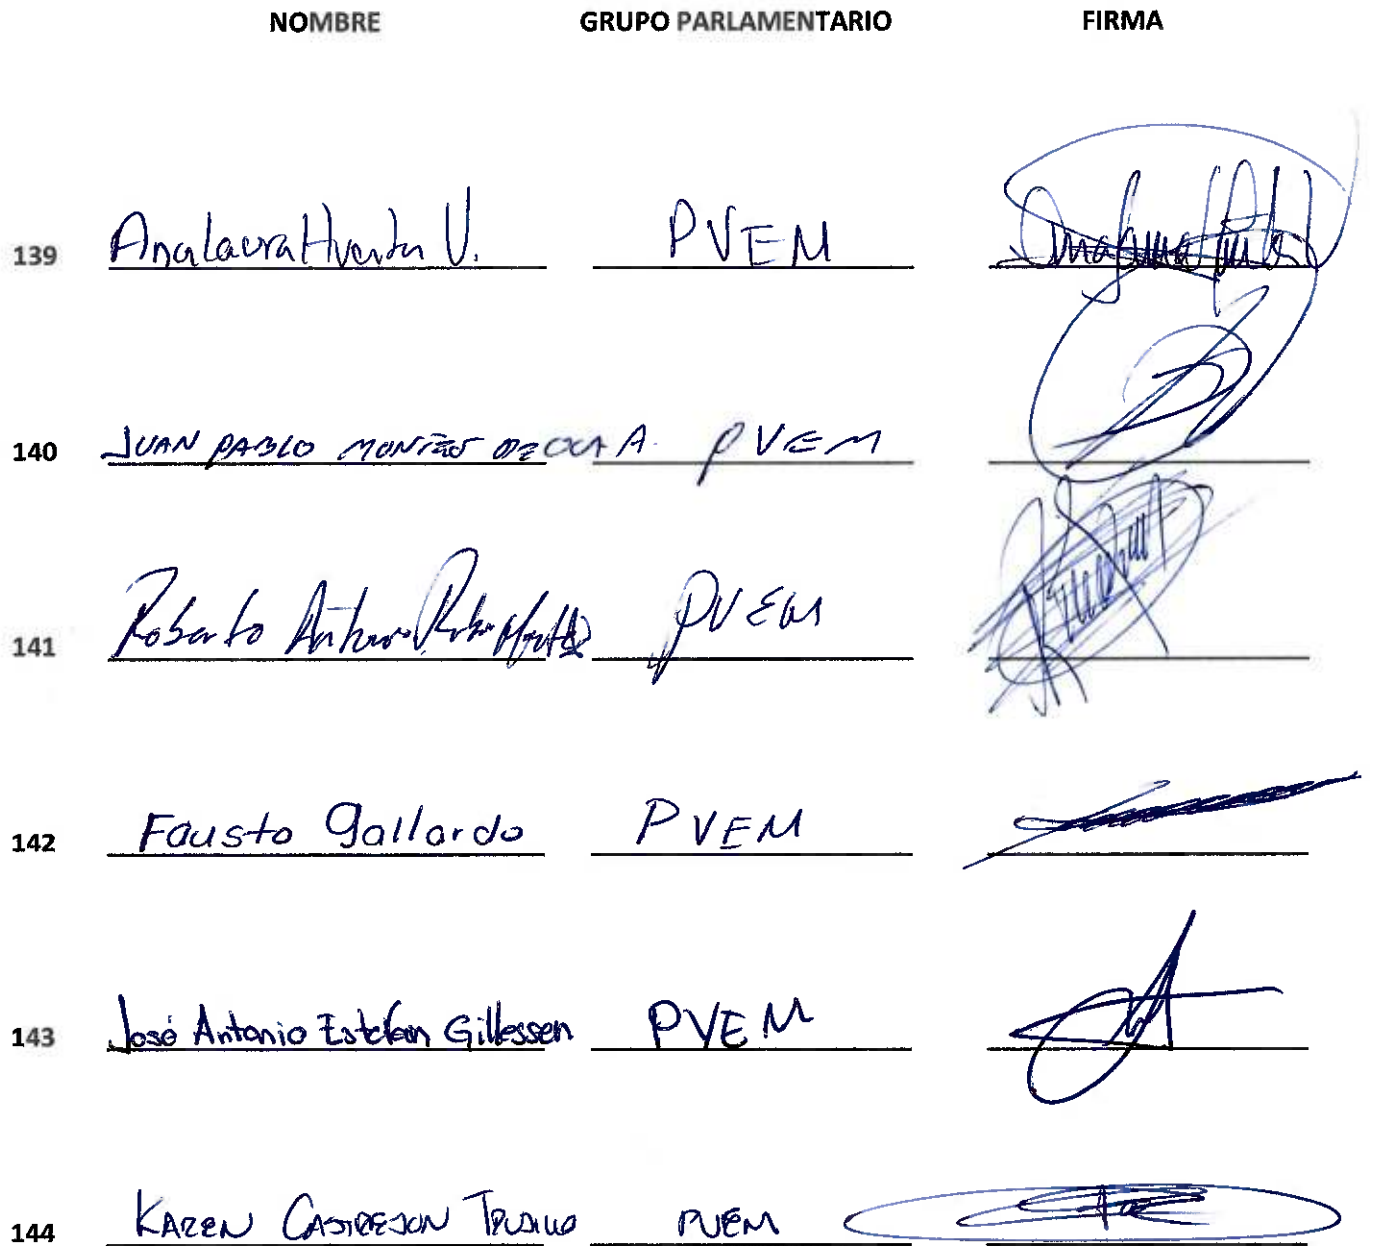 NOMBRE GRUPO PARLAMENTARIO FIRMA
139 Ana Laura Huerta V. PVEM
140 JUAN PABLO MONTES DE OCA A. PVEM
141 Roberto Antonio Rubio PVEM
142 Fausto Gallardo PVEM
143 José Antonio Estefan Gillessen PVEM
144 KAREN CASTREJON TRUJILLO PVEM